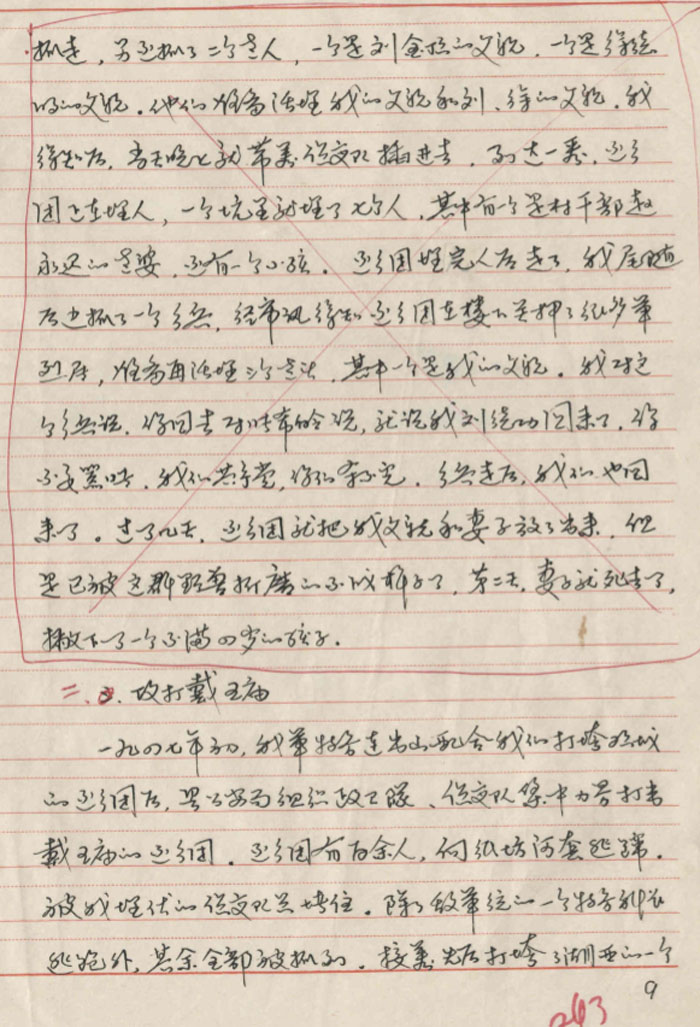 抓走，另还抓了二个老人，一个是刘金拉的父亲，一个是徐德
的父亲。他们准备活埋我的父亲和刘、徐的父亲。我
得知后，当天晚上就带着保安队插进去，到达一看，还乡
团正在埋人，一个坑里就埋了七个人，其中有一个是村干部赵
永迟的老婆，还有一个小孩。还乡团埋完人后走了，我尾随
后边抓了一个乡兵，经审讯得知还乡团在楼下关押了很多军
烈属，准备再活埋三个老头，其中一个是我的父亲。我对这
个乡兵说，你回去对 说，就说我刘继功回来了，你
不要黑时，我们共产党，你们 不完。乡兵走后，我们也回
来了。过了几天，还乡团就把我父亲和妻子放了出来，但
是已被这群野兽折磨的不成样子了，第二天，妻子就死去了，
撇下了一个不满四岁的孩子。
二、攻打戴王庙
一九四七年初，我军特务连出山配合我们打垮 城
的还乡团后，县公安局组织政卫队、保安队集中力量打击
戴王庙的还乡团。还乡团有百余人，向纸坊河套逃窜。
被我埋伏的保安队兵堵住。除了敌军统的一个特务
逃跑外，其余全部被抓到。接着先后打垮了湖西的一个
9
263